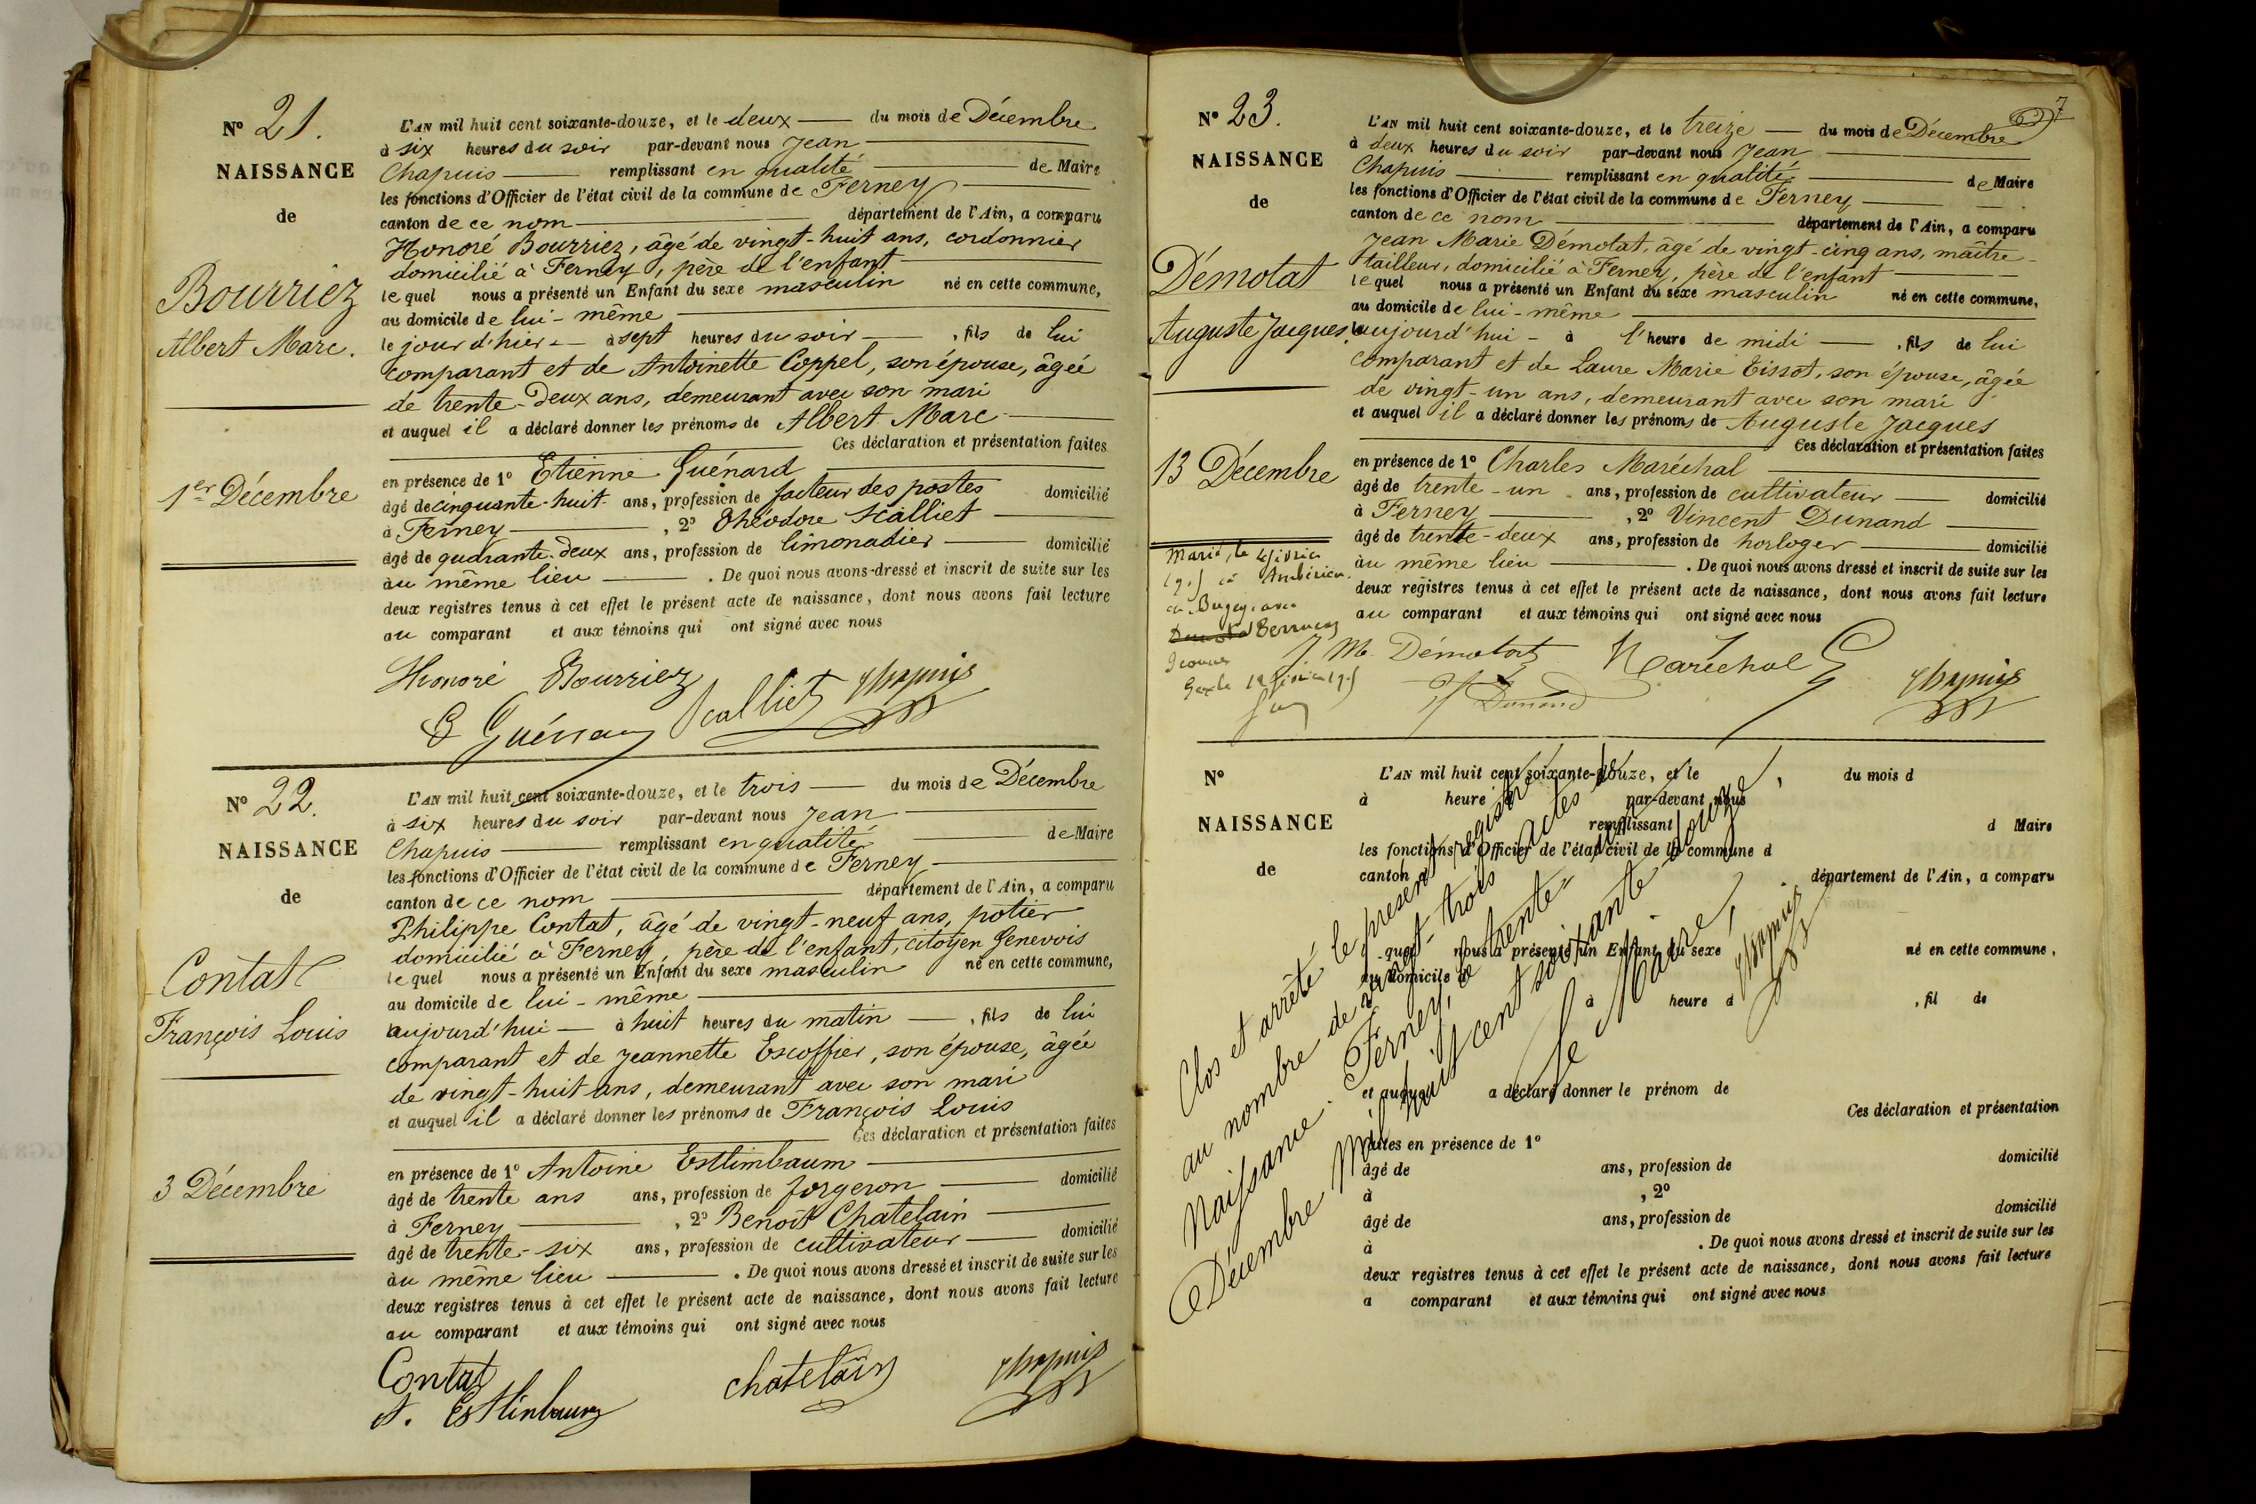 N° 21.
NAISSANCE
de
Bourriez
Albert Marc.
1er Décembre
L'AN mil huit cent soixante-douze, et le deux du mois de Décembre
à six heures du soir par-devant nous Jean
Chapuis remplissant en qualité de Maire
les fonctions d'Officier de l'état civil de la commune de Ferney
canton de ce nom département de l'Ain, a comparu
Honoré Bourriez, âgé de vingt-huit ans, cordonnier
domicilié à Ferney, père de l'enfant
lequel nous a présenté un Enfant du sexe masculin né en cette commune,
au domicile de lui-même
le jour d'hier à sept heures du soir, fils de lui
comparant et de Antoinette Coppel, son épouse, âgée
de trente-deux ans, demeurant avec son mari
et auquel il a déclaré donner les prénoms de Albert Marc
Ces déclaration et présentation faites
en présence de 1° Etienne Guénard
âgé de cinquante-huit ans, profession de facteur des postes domicilié
à Ferney, 2° Théodore Scalliet
âgé de quarante-deux ans, profession de limonadier domicilié
au même lieu. De quoi nous avons dressé et inscrit de suite sur les
deux registres tenus à cet effet le présent acte de naissance, dont nous avons fait lecture
au comparant et aux témoins qui ont signé avec nous
Honoré Bourriez
E Guénard Scalliet Chapuis
N° 22.
NAISSANCE
de
Contat
François Louis
3 Décembre
L'AN mil huit cent soixante-douze, et le trois du mois de Décembre
à six heures du soir par-devant nous Jean
Chapuis remplissant en qualité de Maire
les fonctions d'Officier de l'état civil de la commune de Ferney
canton de ce nom département de l'Ain, a comparu
Philippe Contat, âgé de vingt-neuf ans, potier
domicilié à Ferney, père de l'enfant, citoyen Genevois
lequel nous a présenté un Enfant du sexe masculin né en cette commune,
au domicile de lui-même
aujourd'hui à huit heures du matin, fils de lui
comparant et de Jeannette Escoffier, son épouse, âgée
de vingt-huit ans, demeurant avec son mari
et auquel il a déclaré donner les prénoms de François Louis
Ces déclaration et présentation faites
en présence de 1° Antoine Estlimbaum
âgé de trente ans ans, profession de forgeron domicilié
à Ferney, 2° Benoît Chatelain
âgé de trente-six ans, profession de cultivateur domicilié
au même lieu. De quoi nous avons dressé et inscrit de suite sur les
deux registres tenus à cet effet le présent acte de naissance, dont nous avons fait lecture
au comparant et aux témoins qui ont signé avec nous
Contat chatelain Chapuis
A. Estlinbaum
7
N° 23.
NAISSANCE
de
Démotat
Auguste Jacques.
13 Décembre
L'AN mil huit cent soixante-douze, et le treize du mois de Décembre
à deux heures du soir par-devant nous Jean
Chapuis remplissant en qualité de Maire
les fonctions d'Officier de l'état civil de la commune de Ferney
canton de ce nom département de l'Ain, a comparu
Jean Marie Démotat, âgé de vingt-cinq ans, maître
tailleur, domicilié à Ferney, père de l'enfant
lequel nous a présenté un Enfant du sexe masculin né en cette commune,
au domicile de lui-même
aujourd'hui à l'heure de midi, fils de lui
comparant et de Laure Marie Tissot, son épouse, âgée
de vingt-un ans, demeurant avec son mari
et auquel il a déclaré donner les prénoms de Auguste Jacques
Ces déclaration et présentation faites
en présence de 1° Charles Maréchal
âgé de trente-un ans, profession de cultivateur domicilié
à Ferney, 2° Vincent Dunand
âgé de trente-deux ans, profession de horloger domicilié
au même lieu. De quoi nous avons dressé et inscrit de suite sur les
deux registres tenus à cet effet le présent acte de naissance, dont nous avons fait lecture
au comparant et aux témoins qui ont signé avec nous
Marié, le
à Ambérieu
en Bugey, avec
J M Démotat Maréchal Chapuis
Dunand
N°
NAISSANCE
de
L'AN mil huit cent soixante-douze, et le du mois d
à heure par-devant nous
remplissant d Maire
les fonctions d'Officier de l'état civil de la commune d
canton d département de l'Ain, a comparu
quel nous a présenté un Enfant du sexe né en cette commune,
au domicile d
à heure d, fil de
et auquel a déclaré donner le prénom de
Ces déclaration et présentation
faites en présence de 1°
âgé de ans, profession de domicilié
à, 2°
âgé de ans, profession de domicilié
à. De quoi nous avons dressé et inscrit de suite sur les
deux registres tenus à cet effet le présent acte de naissance, dont nous avons fait lecture
a comparant et aux témoins qui ont signé avec nous
Clos et arrêté le présent registre
au nombre de vingt-trois actes de
Naissance. Ferney, le trente-un
Décembre mil huit cent soixante-douze,
Le Maire,
Chapuis